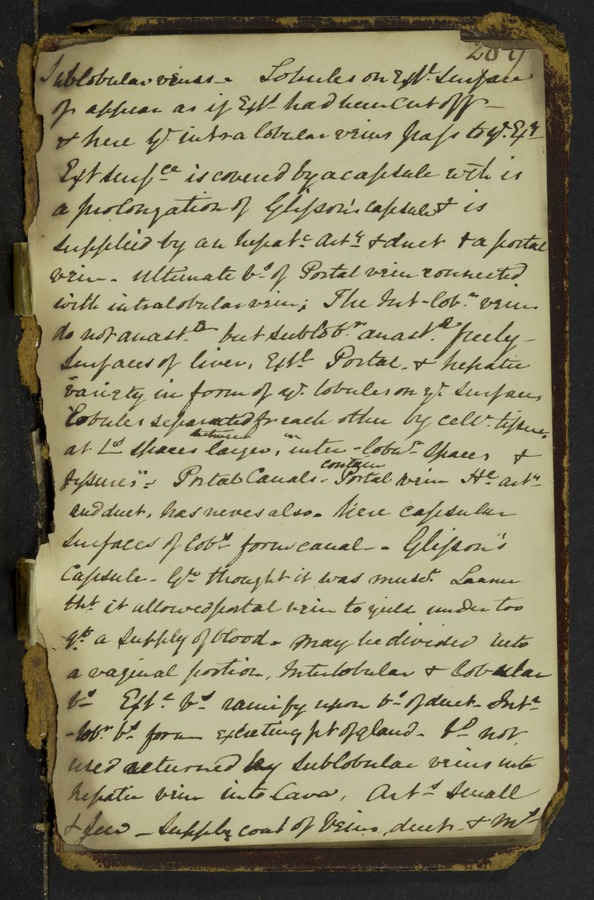 209
Sublobular veins - Lobules on Extl. Surface
of appear as if Extl. had been cut off -
& here yr. intralobular veins pass to yr. Extr.
Ext surfce is covered by a capsule wch is
a prolongation of Glisson's capsule & is
supplied by an hepatc arty & duct & a portal
vein. Ultimate bs of Portal vein connected
with intralobular vein; The Int-lobr veins
do not anast. but sublobr anast. freely -
Surfaces of liver, Extl. Portal. & hepatic
variety in form of yr. lobules on yr. surfaces
Lobules separated fr each other by cellr. tissue,
at Ls spaces between larger, "inter-lobr spaces &
fissures". Portal Canals - contain Portal vein Hc arty
and duct, has nerves also. Here capsular
surfaces of lobs form canal - Glisson's
Capsule - Gn thought it was musc.
tht it allowed portal vein to yield under too
gt a supply of blood - may be divided into
a vaginal portion, Interlobular & lobular
bs Extl bs ramify upon bs of duct - Intr
-lobr bs form excreting pt of gland - Bd not
used returned by sublobular veins into
hepatic vein into Cava, Arts small
& few - Supply coat of veins, ducts & Ms